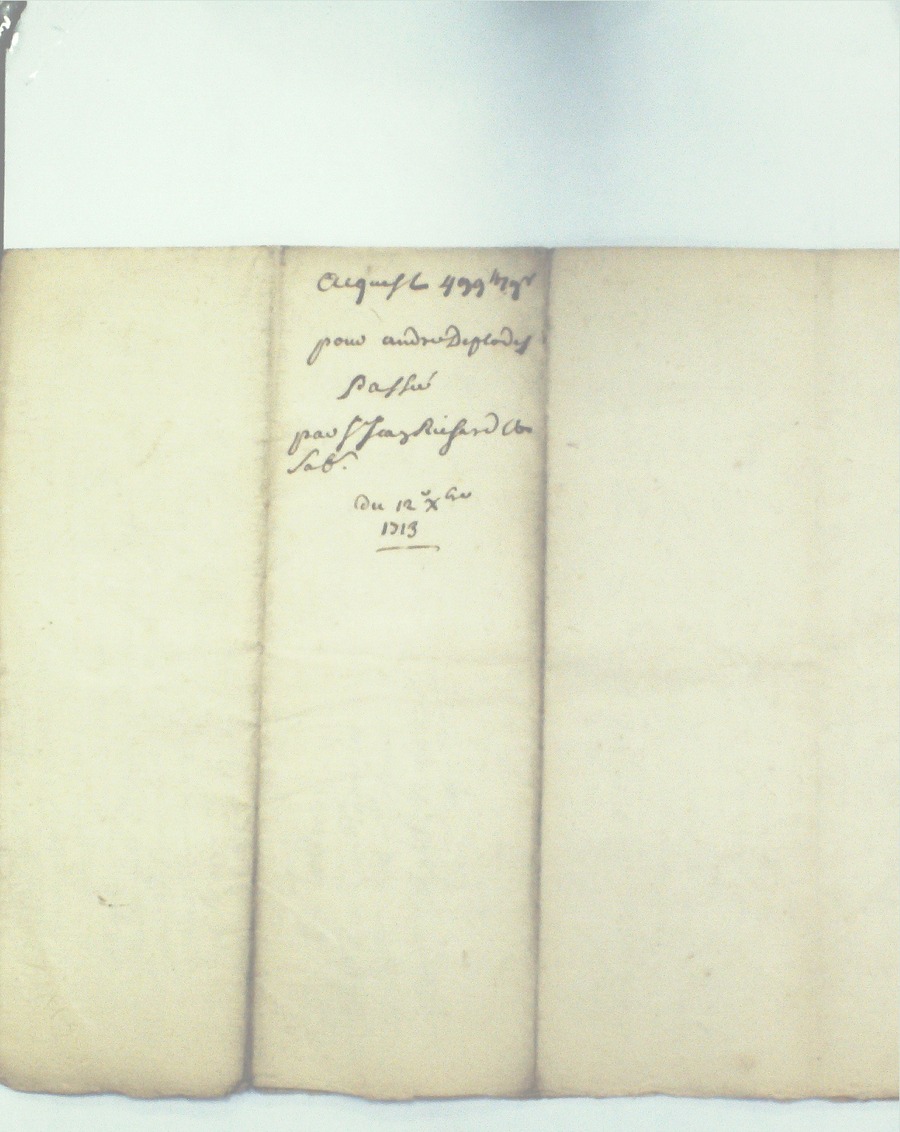 Acquest 499
pour andre Desplodes
Passé
par Sr Jean Richard
Sab.
Du 12e Xbre
1713